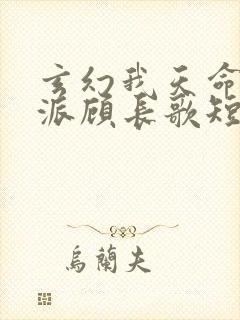 玄幻我天命
派顾长歌短
乌兰夫